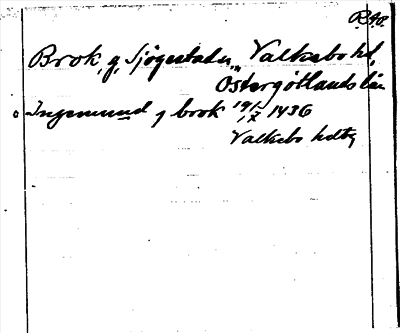 R.40.
Brok, g, Sjögestads sn, Valkebo hd,
Östergötlands län
o Ingemund j brok 19/X 1436
Valkebo hdtg